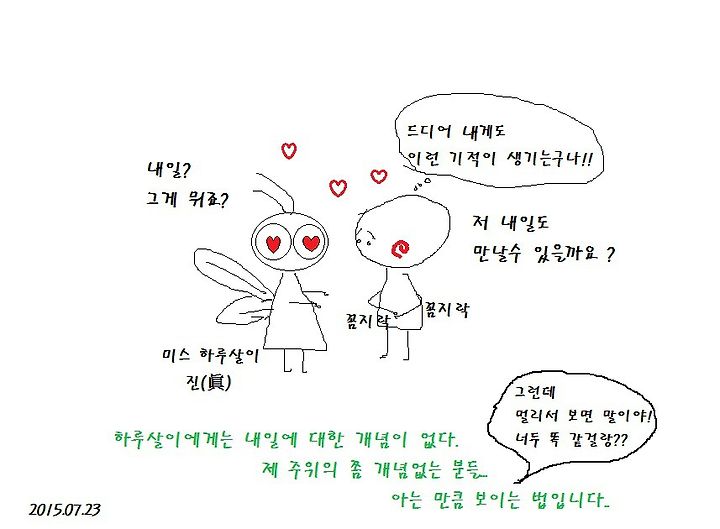 드디어 내게도
이런 기적이 생기는구나!!
내일?
그게 뭐죠?
저 내일도
만날수 있을까요 ?
꼼지락
꼼지락
미스 하루살이
진(眞)
그런데
멀리서 보면 말이야!
너두 똑 같걸랑??
하루살이에게는 내일에 대한 개념이 없다.
제 주위의 쫌 개념없는 분들..
아는 만큼 보이는 법입니다..
2015.07.23